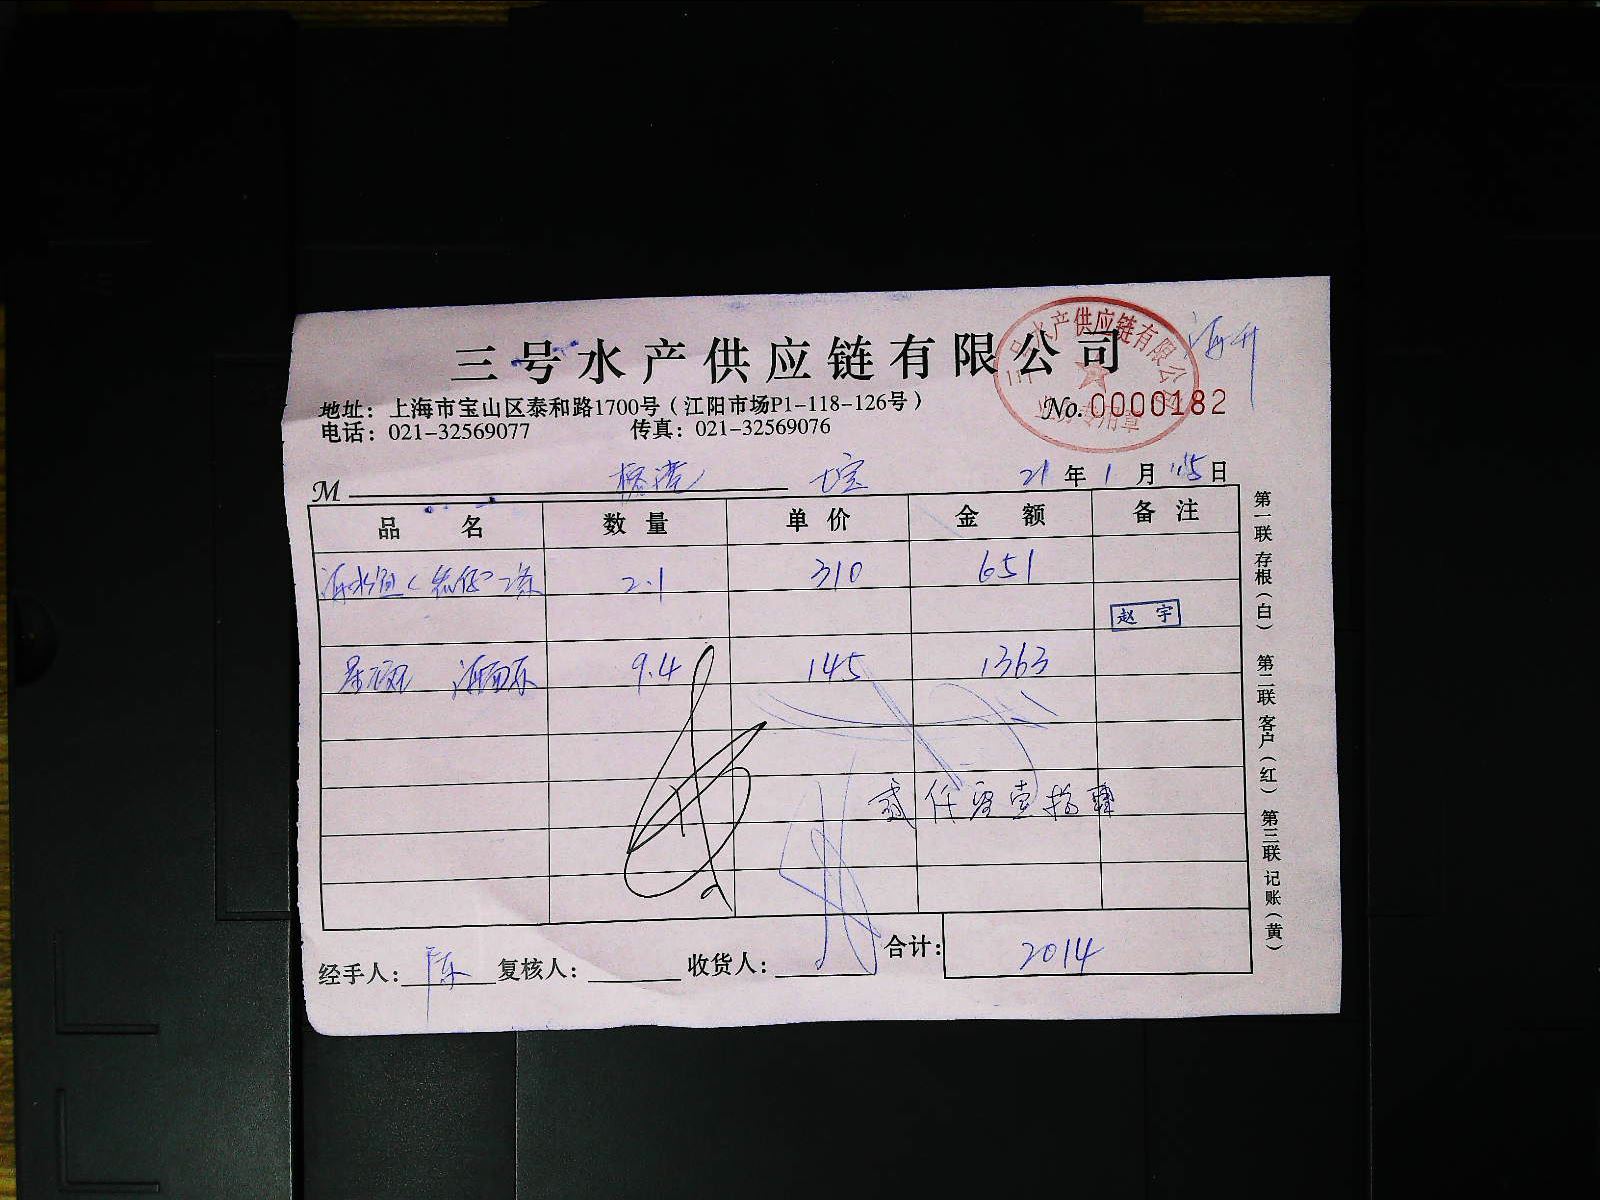 三号水产供应链有限公司
地址：上海市宝山区泰和路1700号（江阳市场P1-118-126号）
No. 0000182
电话：021-32569077 传真：021-32569076
水产供应链有限公
专用章
M 七宝 21年1月15日
品名 数量 单价 金额 备注
2.1 310 651
赵宇
9.4 145 1363
贰仟零壹拾肆
合计： 2014
经手人： 陈 复核人： 收货人：
第一联 存根（白） 第二联 客户（红） 第三联 记账（黄）